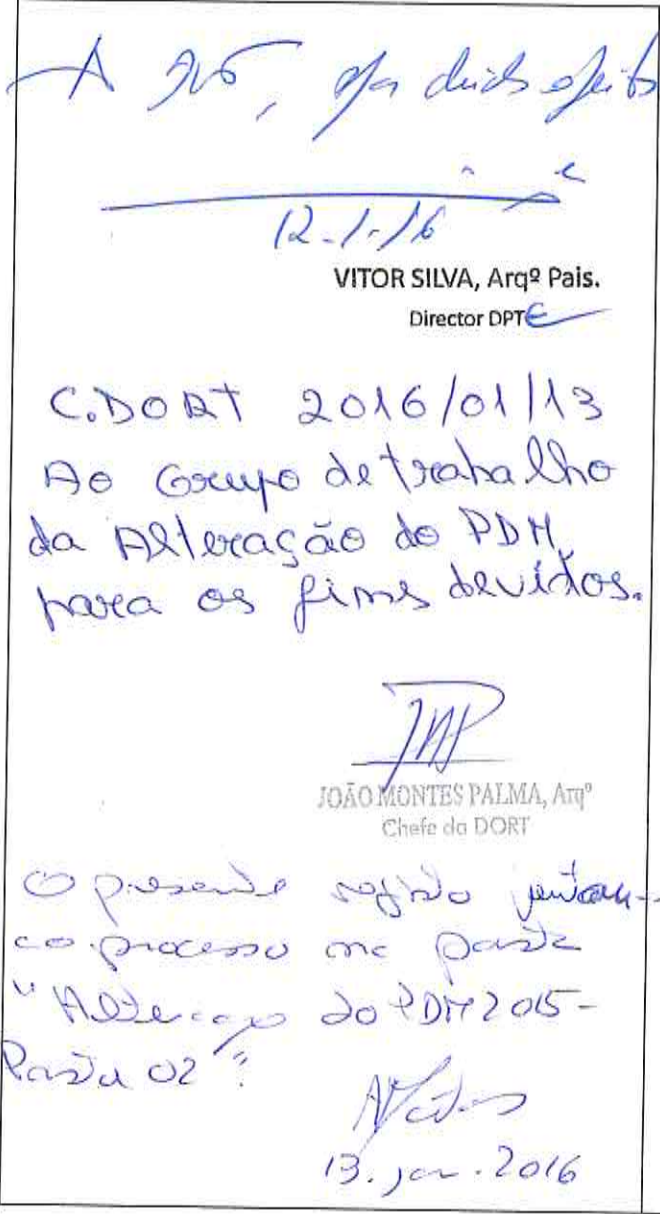 A
12.1.16
VITOR SILVA, Arqº Pais.
Director DPTE
C.DORT 2016/01/13
Ao Grupo de trabalho
da Alteração do PDM,
para os fins devidos.
JOÃO MONTES PALMA, Arqº
Chefe da DORT
O presente registo
ao processo na pasta
"Alteração do PDM 2015-
Pasta 02".
13. jan. 2016